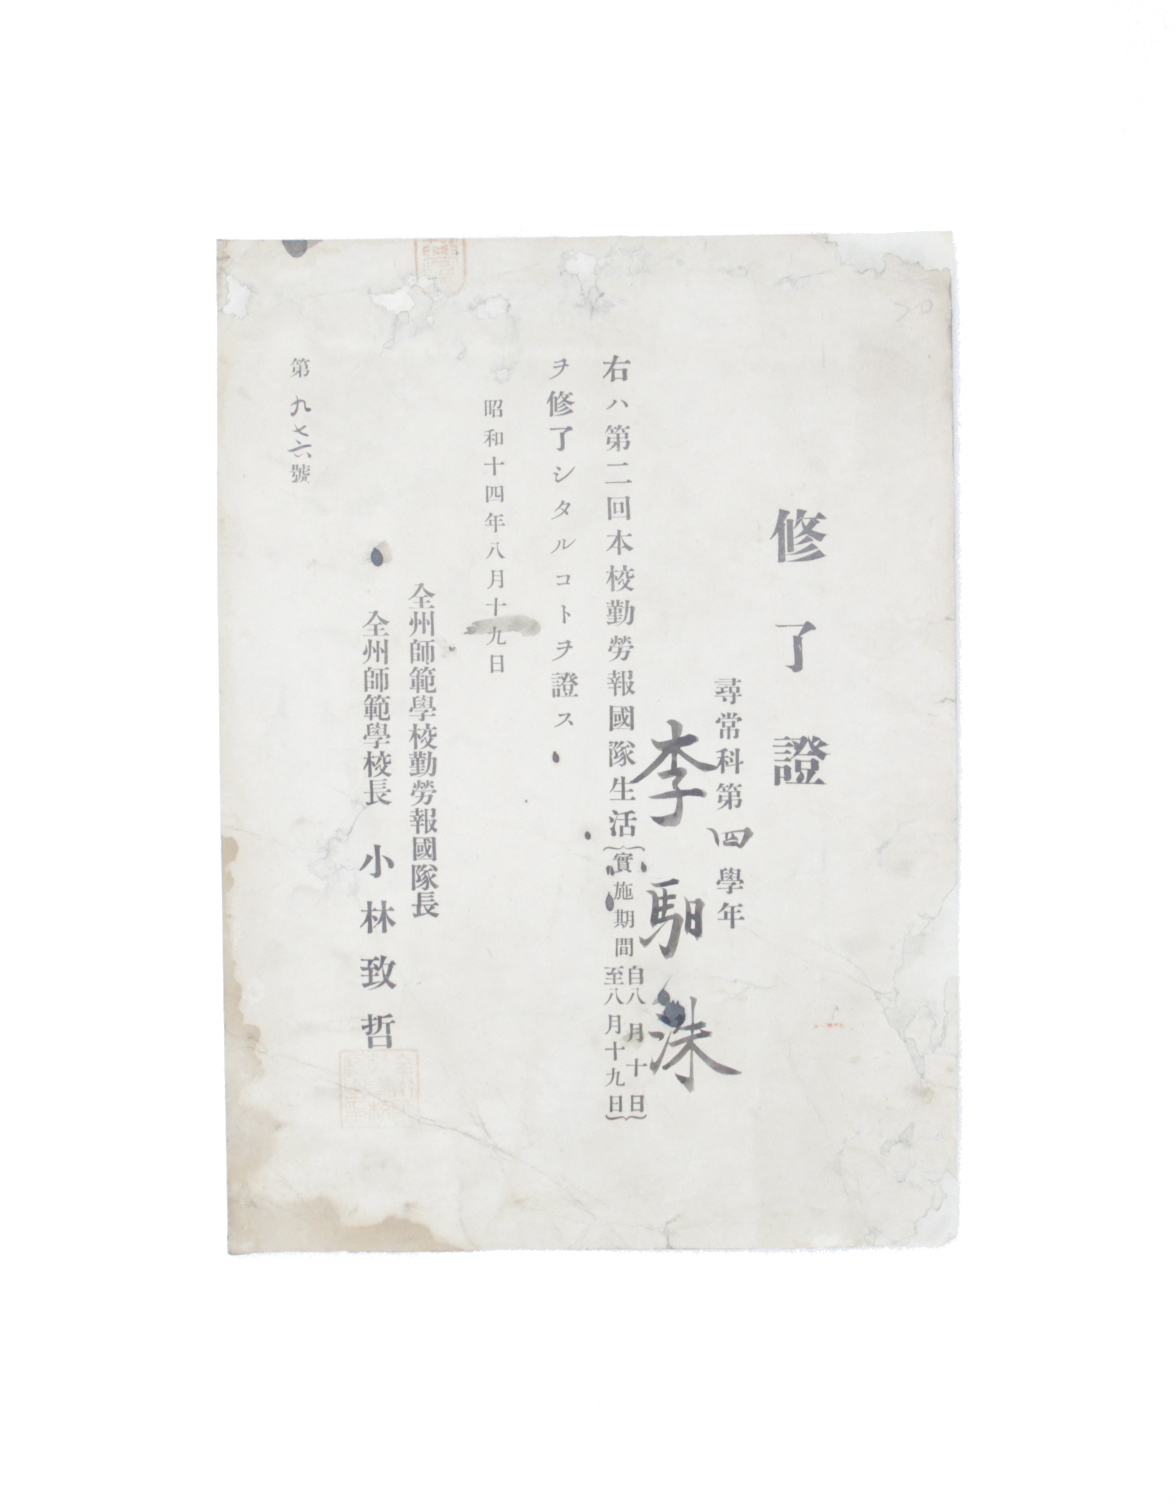 修了證
尋常科第四學年
李馹洙
右ハ第二回本校勤勞報國隊生活(實施期間自八月十日至八月十九日)
ヲ修了シタルコトヲ證ス
昭和十四年八月十九日
全州師範學校勤勞報國隊長
全州師範學校長 小林致哲
第九七六號